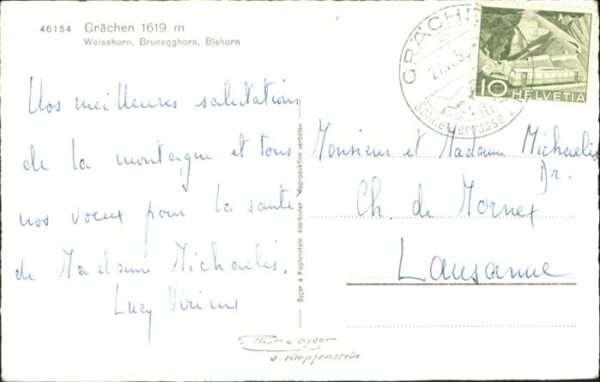 46154 Grächen 1619 m
Weisshorn, Brunegghorn, Bishorn
Nos meilleures salutations
de la montagne et tous
nos voeux pour la santé
de Madame Michaelis.
Lucy
Monsieur et Madame Michaelis
Dr.
Ch. de Mornex
Lausanne
GRÄCHEN
10 HELVETIA
Reproduktion verboten
v. Klopfenstein